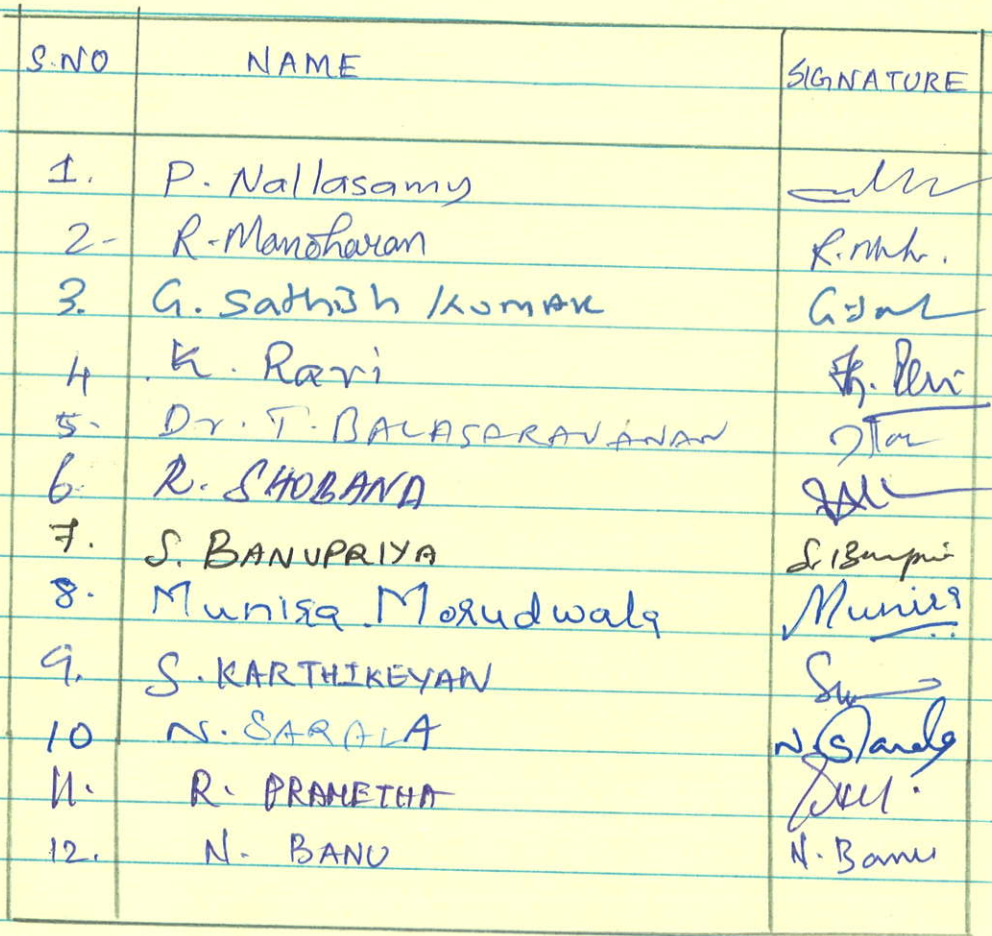 S.NO NAME SIGNATURE
1. P. Nallasamy
2- R-Manoharan R.
3. G. Sathish Kumar
4 K. Ravi
5. Dr. T. BALASARAVANAN
6. R. SHOBANA
7. S. BANUPRIYA
8. Munira Morudwala Munira
9. S. KARTHIKEYAN
10 N. SARALA N. Sarala
11. R. PRAMETHA
12. N. BANU N. Banu